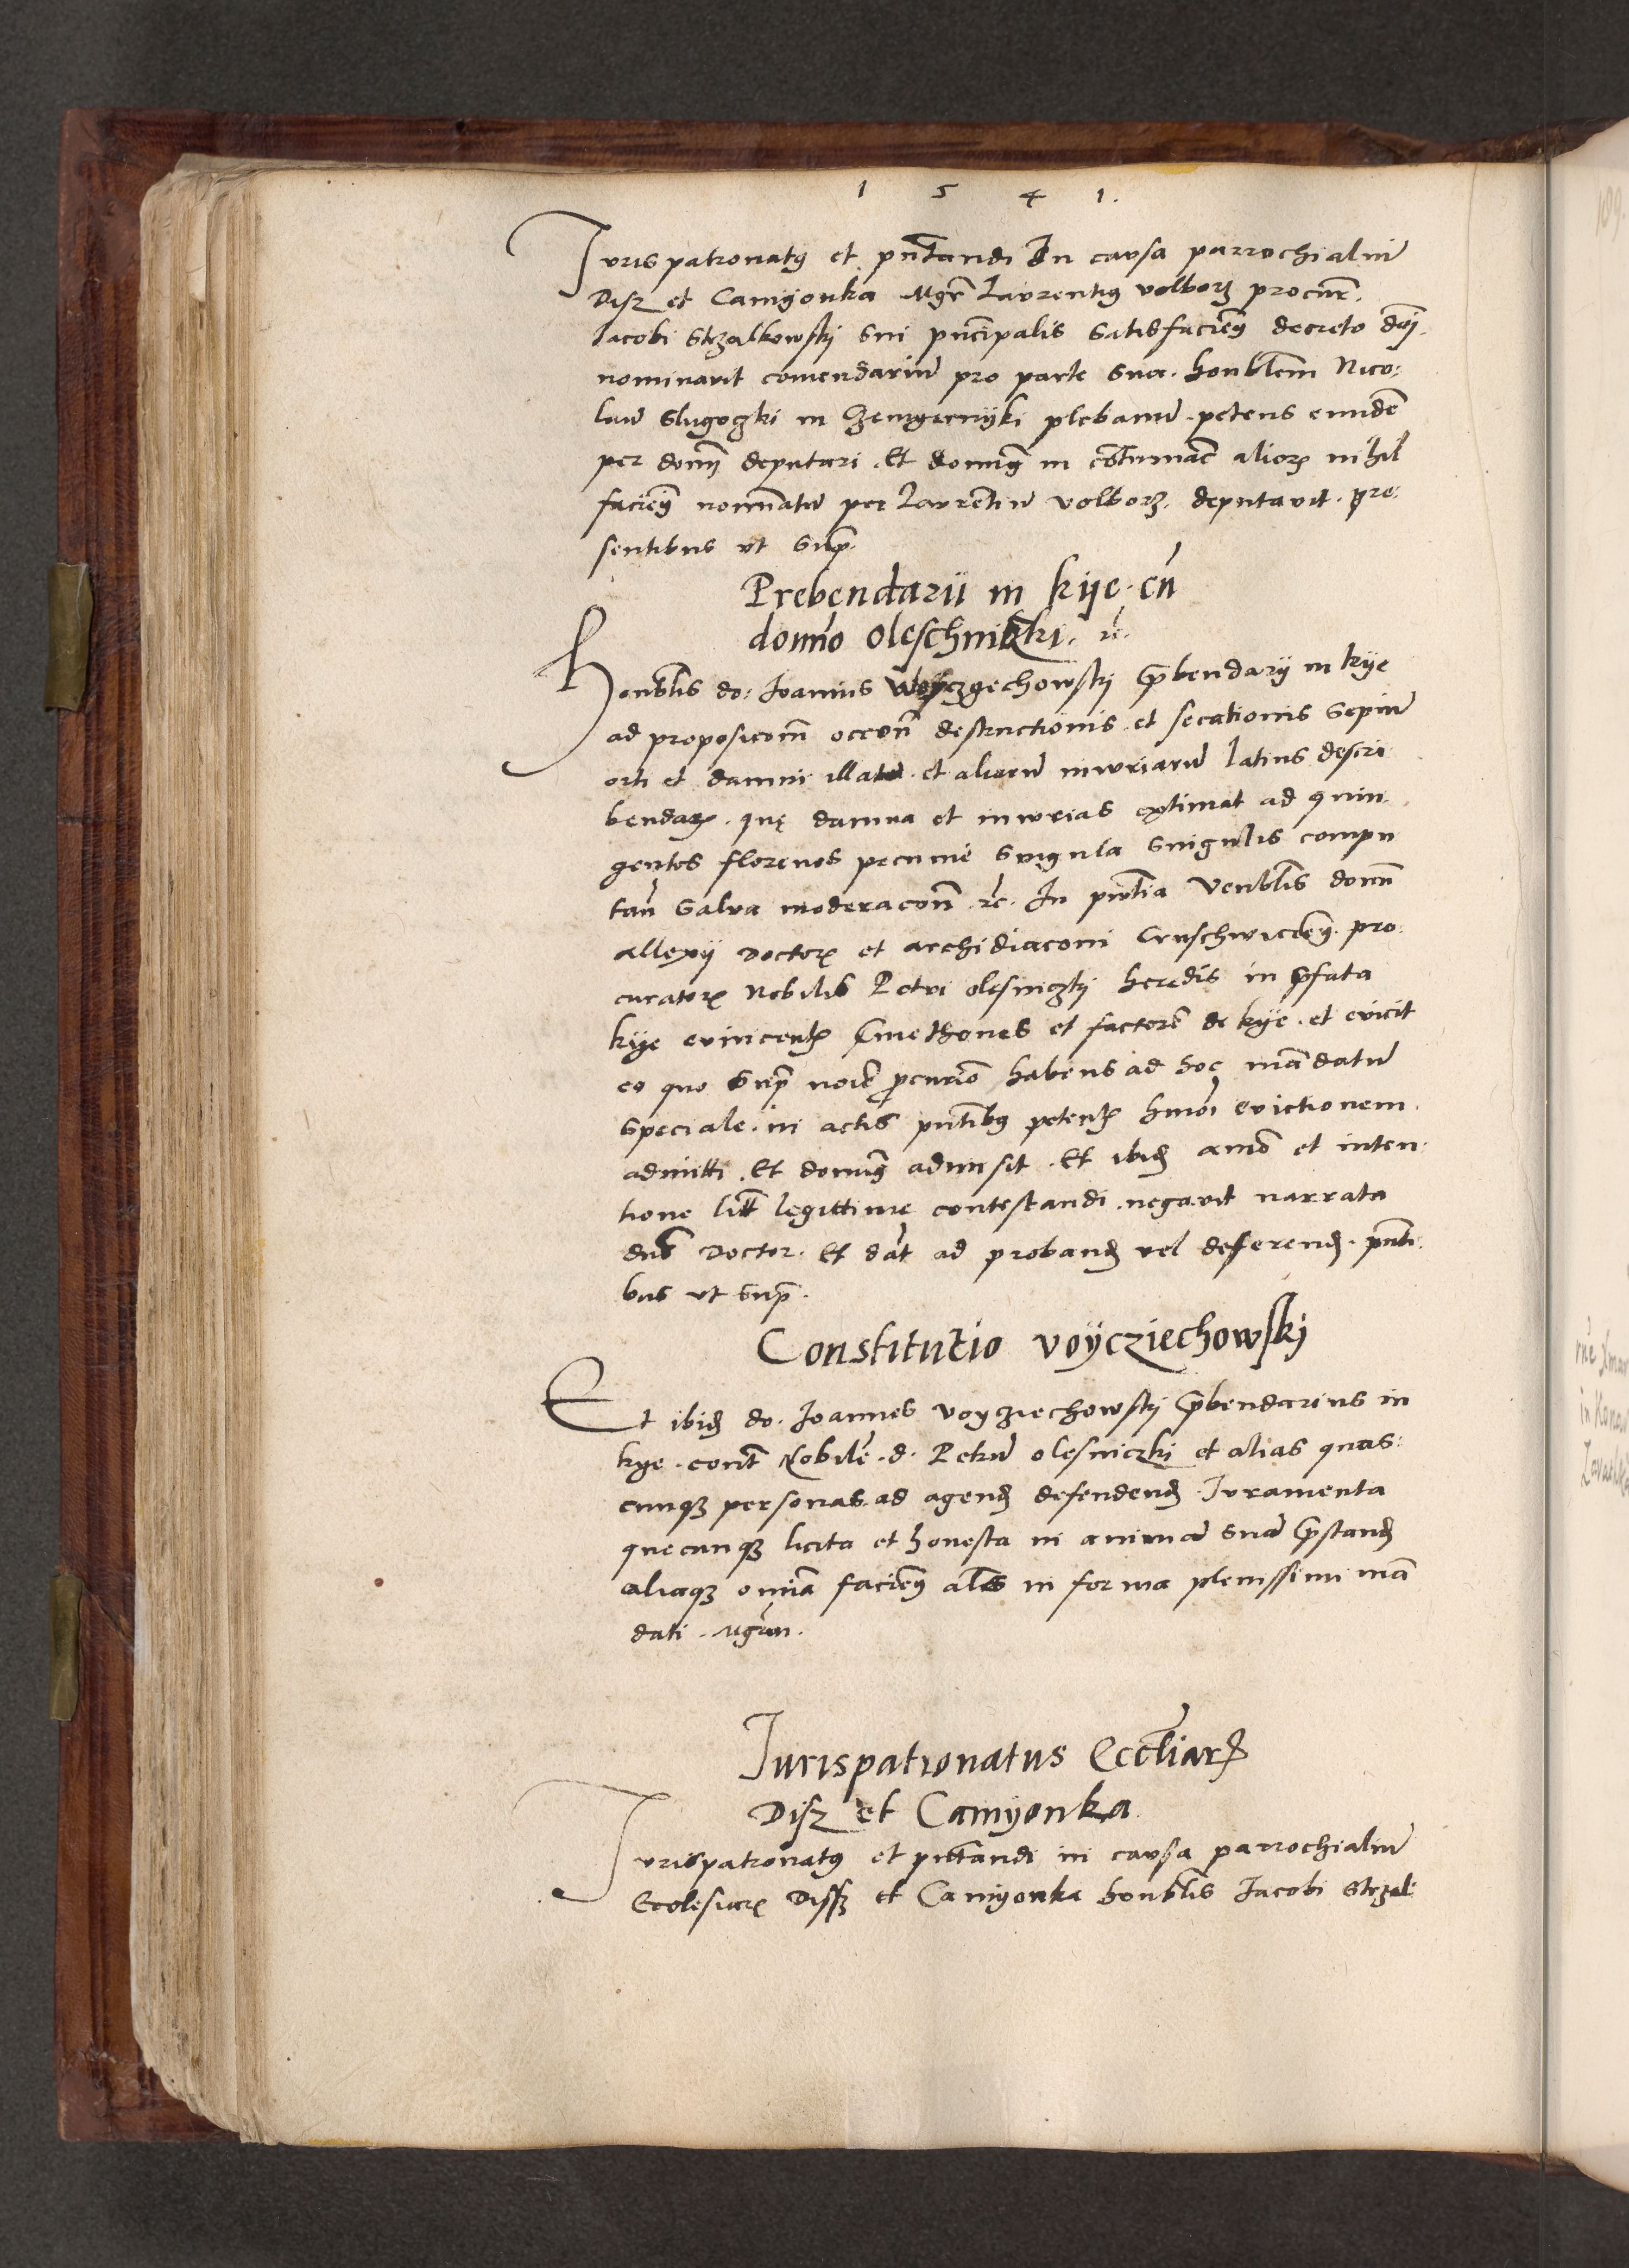 1 5 4 1.
Juris patronatus et pntandi In causa parrochialiu
Disz et Camyonka Mgr Laurentius volborz procur.
Jacobi Strzalkowskj sui pncipalis satisfaciens decreto dni.
nominavit comendariu pro parte sua. honblem Nico:
lau Slugoczki in plebanu. petens eunde
per donu deputari. Et dominus in cotumac alior nihil
facien nominatu per Laurentiu volborz. deputavit. pre:
sentibus ut sup.
Prebendarii in kije. cu
domno oleschniczki. rc.
Honblis do: Joannis Woyczyechowskj pbendarij in kije
ad proposicom occon destructionis. et secationis sepiu
orti et damni illati. et aliaru iniuriaru latius descri
bendar. que damna et iniurias extimat ad quin
gentos florenos pecunie singula singulis compu
tan salva moderacon rc. In pntia Venblis domi
allexij Doctor et archidiaconi Cruschvicien. pro:
curator Nobilis Petri olesniczkj heredis in pfata
kije evincent Cmethones et factore de kije. et evicit
eo quo sup noie procurio habens ad hoc madatu
speciale. in actis pntibus petent hmoi evictionem.
admitti. Et dominus admisit. Et ibid animo et inten:
tione lite legittime contestandi. negavit narrata
dns Doctor. Et dat ad proband vel deferend. pnti:
bus ut sup.
Constitutio voycziechowskj
Et ibid do. Joannes voycziechowskj pbendarius in
kye. cont Nobile. d. Petru olesniczki et alias quas:
cunq personas. ad agend defendend. Juramenta
quecunq licita et honesta in anima sua pstand
aliaq omnia faciens als in forma plenissimi ma
dati. Mgrum.
Jurispatronatus Eccliar
Disz et Camyonka
Jurispatronatus et pntandi in causa parrochialiu
Ecclesiar Dissz et Camyonka honblis Jacobi Strzal